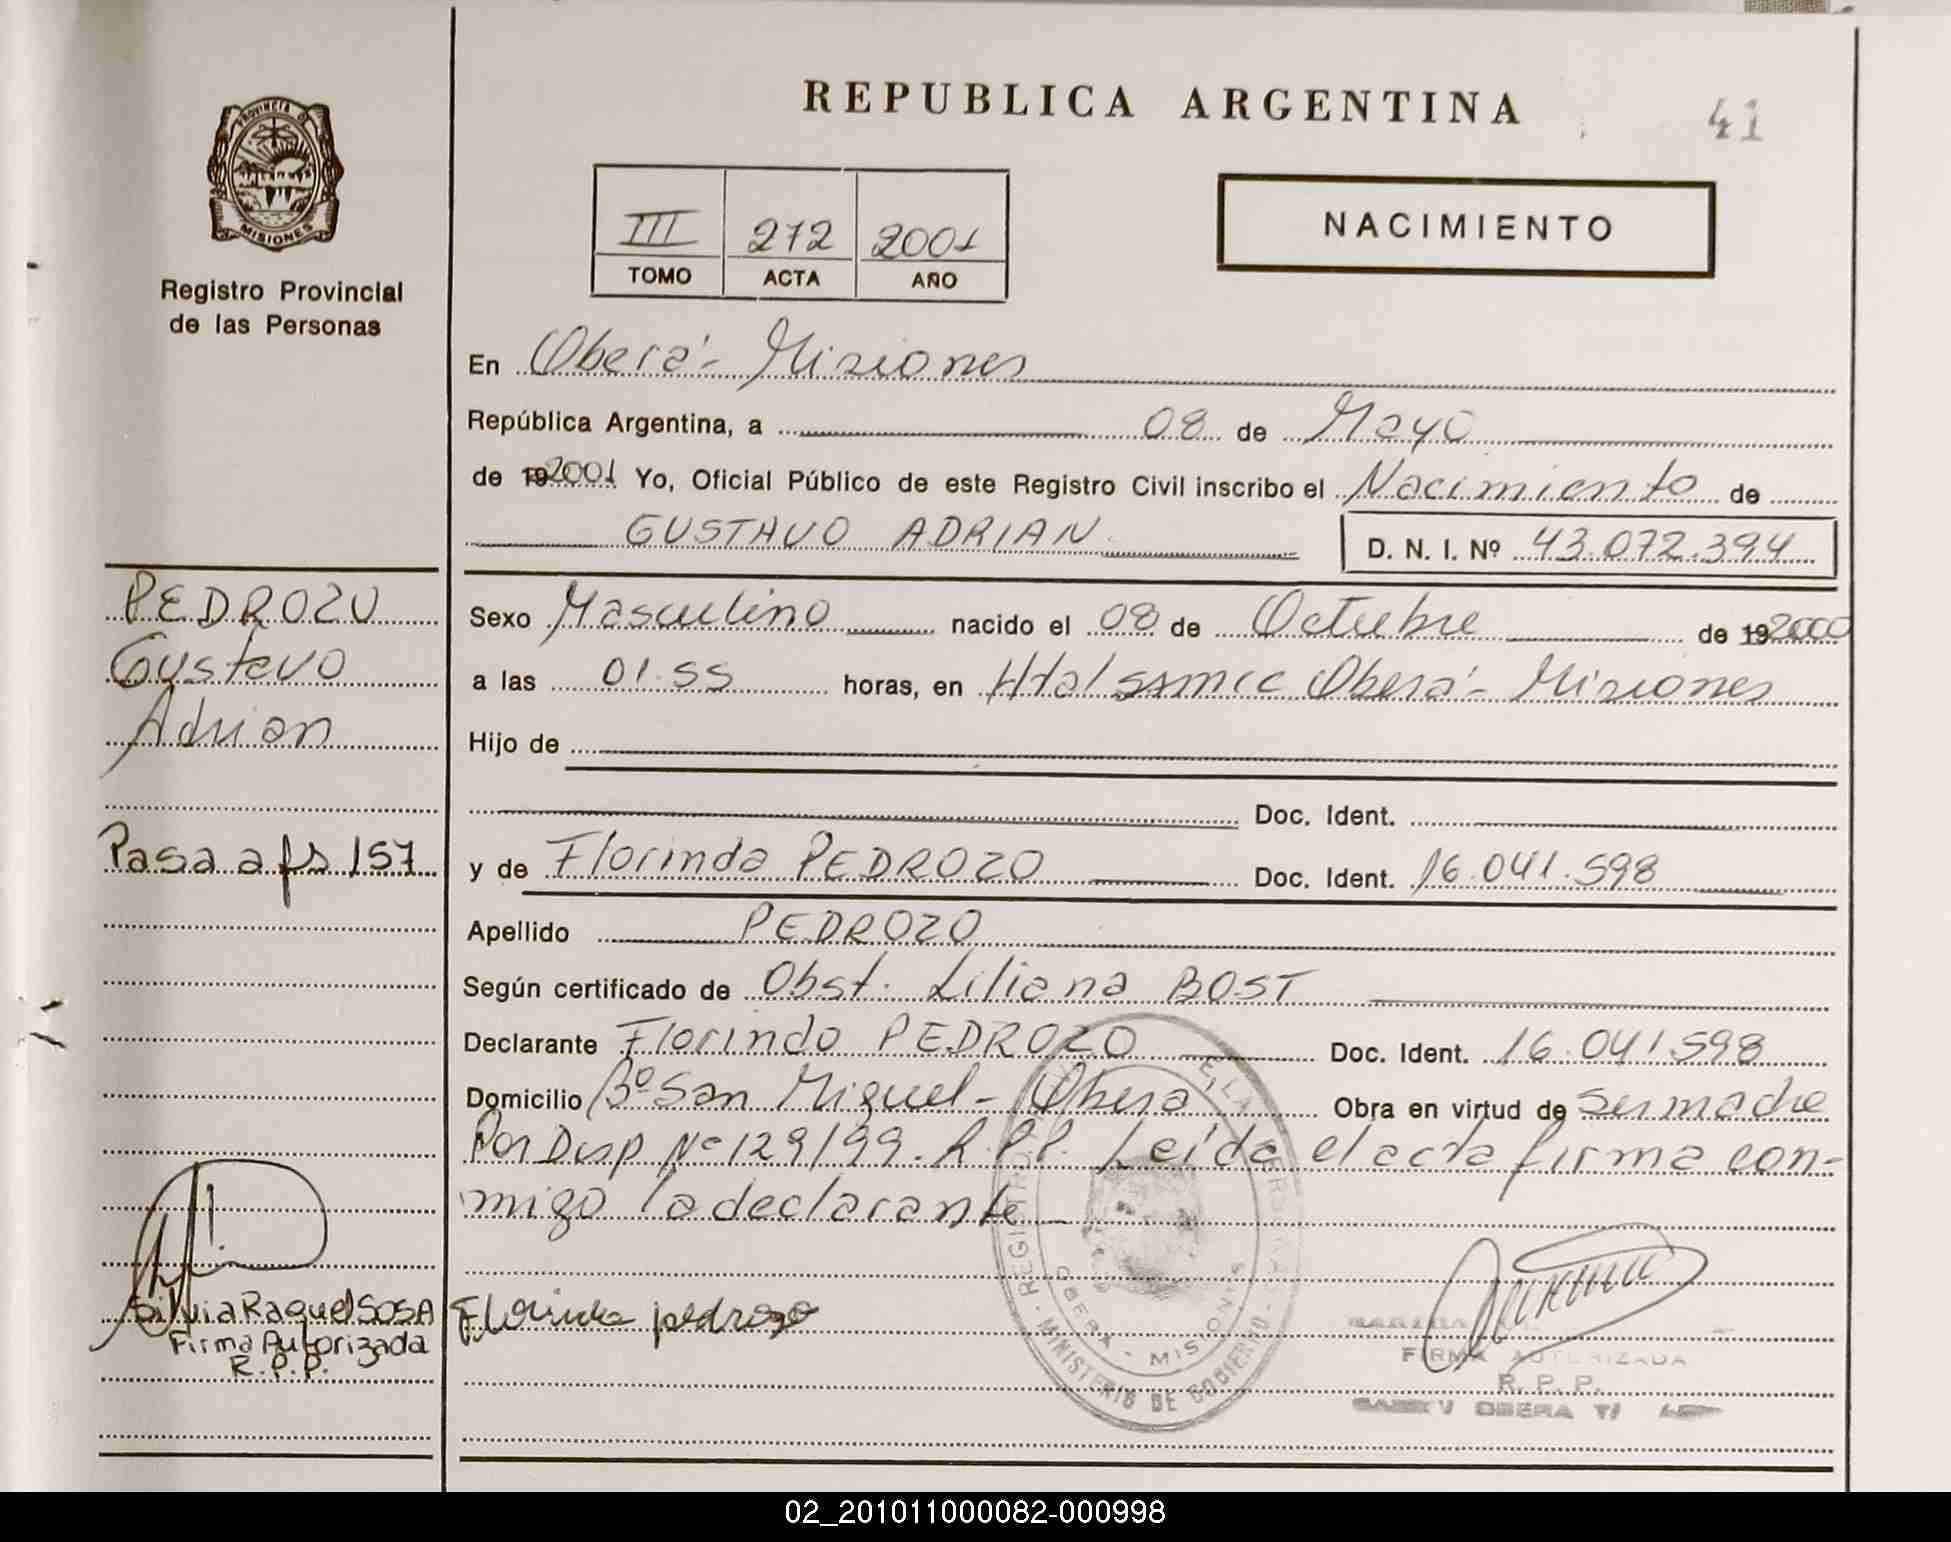 REPUBLICA ARGENTINA
41
PROVINCIA DE
MISIONES
Registro Provincial
de las Personas
III 272 2001
TOMO ACTA AÑO
NACIMIENTO
En Oberá - Misiones
República Argentina, a 08 de Mayo
de 192001 Yo, Oficial Público de este Registro Civil inscribo el Nacimiento de
GUSTAVO ADRIAN D. N. I. Nº 43.072.394
PEDROZO
Gustavo
Adrian
Pasa a fs 157
Sexo Masculino nacido el 08 de Octubre de 192000
a las 01.55 horas, en Htal Samic Oberá - Misiones
Hijo de
Doc. Ident.
y de Florinda PEDROZO Doc. Ident. 16.041.598
Apellido PEDROZO
Según certificado de Obst. Liliana BOST
Declarante Florinda PEDROZO Doc. Ident. 16.041.598
Domicilio Bº San Miguel - Oberá Obra en virtud de ser madre
Por Disp Nº 129/99. R.P.P. Leída el acta firma con-
migo la declarante
Silvia Raquel SOSA
Firma Autorizada
R.P.P.
Florinda pedrozo
OBERA - MISIONES
MINISTERIO DE GOBIERNO
FIRMA AUTORIZADA
R. P. P.
OBERA
02_201011000082-000998